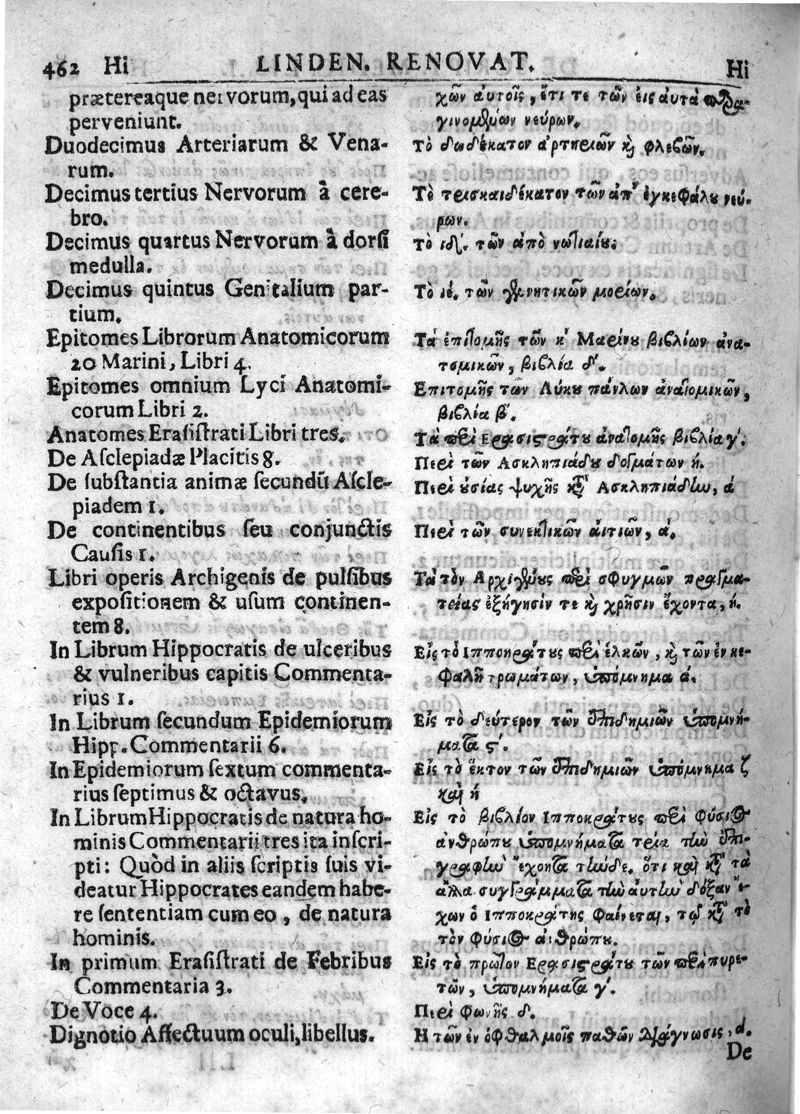 462 Hi LINDEN. RENOVAT. Hi
prætereaque nervorum, qui ad eas
perveniunt.
Duodecimus Arteriarum & Vena-
rum.
Decimus tertius Nervorum à cere-
bro.
Decimus quartus Nervorum à dorsi
medulla.
Decimus quintus Genitalium par-
tium.
Epitomes Librorum Anatomicorum
20 Marini, Libri 4.
Epitomes omnium Lyci Anatomi-
corum Libri 2.
Anatomes Erasistrati Libri tres.
De Asclepiadæ Placitis 8.
De substantia animæ secundũ Ascle-
piadem 1.
De continentibus seu conjunctis
Causis 1.
Libri operis Archigenis de pulsibus
expositionem & usum continen-
tem 8.
In Librum Hippocratis de ulceribus
& vulneribus capitis Commenta-
rius 1.
In Librum secundum Epidemiorum
Hipp. Commentarii 6.
In Epidemiorum sextum commenta-
rius septimus & octavus.
In Librum Hippocratis de natura ho-
minis Commentarii tres ita inscri-
pti: Quòd in aliis scriptis suis vi-
deatur Hippocrates eandem habe-
re sententiam cum eo, de natura
hominis.
In primum Erasistrati de Febribus
Commentaria 3.
De Voce 4.
Dignotio Affectuum oculi, libellus.
χῶν αὐτοῖς, ἔτι τε τῶν εἰς αὐτὰ παρα-
γινομένων νεύρων.
Τὸ δωδέκατον ἀρτηριῶν καὶ φλεβῶν.
Τὸ τρισκαιδέκατον τῶν ἀπ' ἐγκεφάλου νεύ-
ρων.
Τὸ ιδ'. τῶν ἀπὸ νωτιαίου.
Τὸ ιέ. τῶν γεννητικῶν μορίων.
Τὰ ἐπιτομῆς τῶν κ' Μαρίνου βιβλίων ἀνα-
τομικῶν, βιβλία δ'.
Επιτομῆς τῶν Λύκου πάντων ἀνατομικῶν,
βιβλία β'.
Τὰ περὶ Ερασιστράτου ἀνατομῆς βιβλία γ'.
Περὶ τῶν Ασκληπιάδου δογμάτων ή.
Περὶ οὐσίας ψυχῆς κατ' Ασκληπιάδην, ά
Περὶ τῶν συνεκτικῶν αἰτιῶν, ά.
Τὰ τὸν Αρχιγένους περὶ σφυγμῶν πραγμα-
τείας ἐξήγησίν τε καὶ χρῆσιν ἔχοντα, ή.
Εἰς τὸ Ιπποκράτους περὶ ἑλκῶν, καὶ τῶν ἐν κε-
φαλῇ τρωμάτων, ὑπόμνημα ά.
Εἰς τὸ δεύτερον τῶν ἐπιδημιῶν ὑπομνή-
ματα ϛ'.
Εἰς τὸ ἕκτον τῶν ἐπιδημιῶν ὑπόμνημα ζ
καὶ ή
Εἰς τὸ βιβλίον Ιπποκράτους περὶ φύσιος
ἀνθρώπου ὑπομνήματα τρία τὴν ἐπι-
γραφὴν ἔχοντα τήνδε. ὅτι καὶ κατὰ τὰ
ἄλλα συγγράμματα τὴν αὐτὴν δόξαν ἔ-
χων ὁ Ιπποκράτης φαίνεται, τῷ κατὰ τὸ
τὸν φύσιος ἀνθρώπου.
Εἰς τὸ πρῶτον Ερασιστράτου τῶν περὶ πυρε-
τῶν, ὑπομνήματα γ'.
Περὶ φωνῆς δ.
Η τῶν ἐν ὀφθαλμοῖς παθῶν διάγνωσις, ά.
De